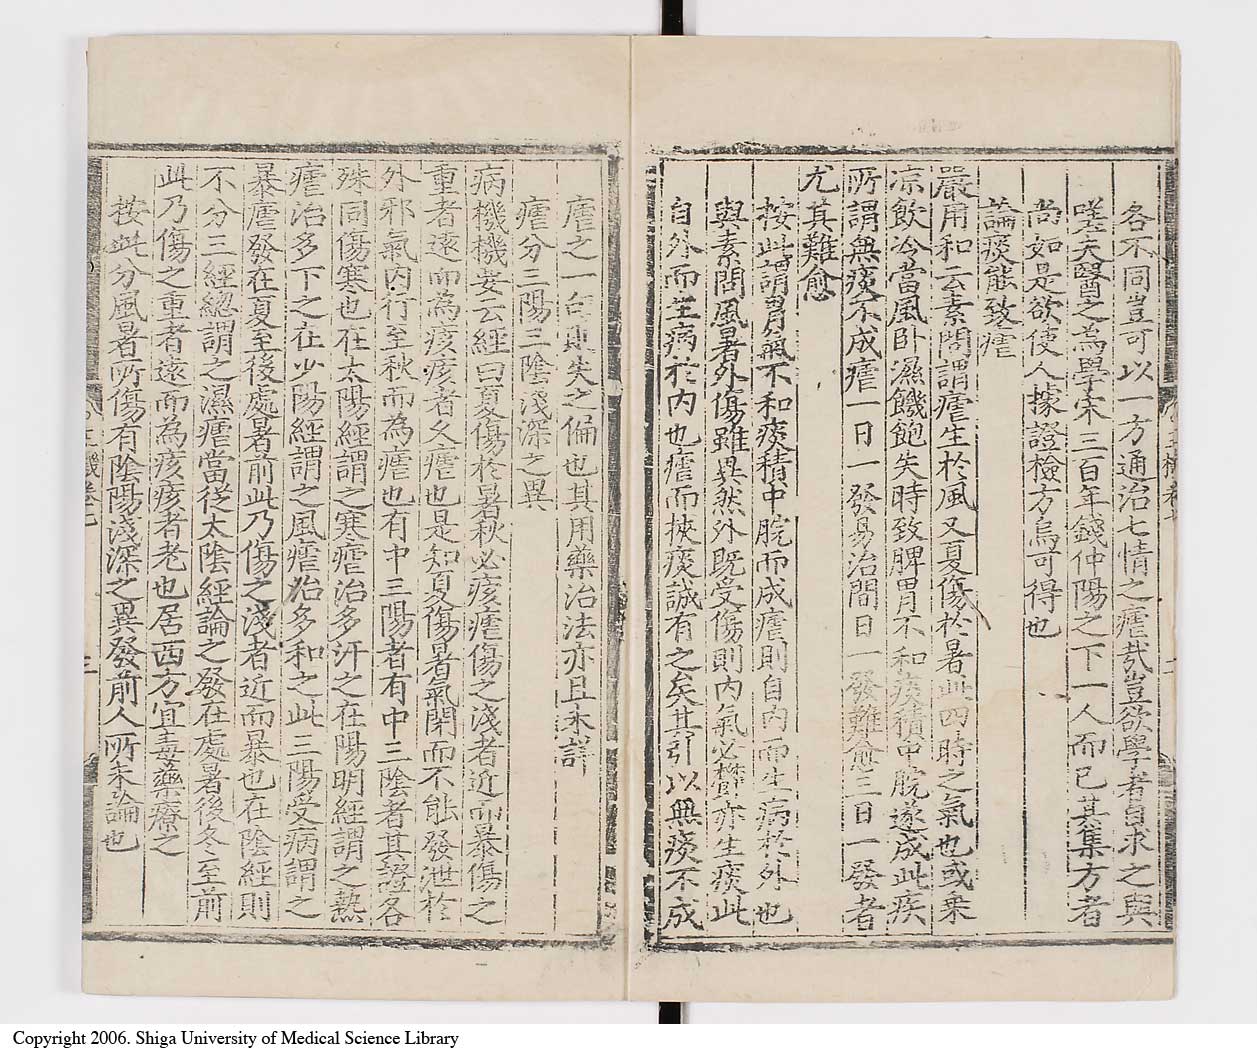 各不同豈可以一方通治七情之瘧哉豈欲學者自求之與
嗟夫醫之為學宋三百年錢仲陽之下一人而已其集方者
尚如是欲使人據證檢方烏可得也
論痰能致瘧
嚴用和云素問謂瘧生於風又夏傷於暑此四時之氣也或乘
凉飲冷當風卧濕饑飽失時致脾胃不和痰積中脘遂成此疾
所謂無痰不成瘧一日一發易治間日一發難愈三日一發者
尤其難愈
按此謂胃氣不和痰積中脘而成瘧則自内而生病於外也
與素問風暑外傷雖異然外既受傷則内氣必欝亦生痰此
自外而生病於内也瘧而挾痰誠有之矣其引以無痰不成
瘧之一句則失之偏也其用藥治法亦且未詳
瘧分三陽三陰淺深之異
病機機要云經曰夏傷於暑秋必痎瘧傷之淺者近而暴傷之
重者遠而為痎痎者久瘧也是知夏傷暑氣閉而不能發泄於
外邪氣内行至秋而為瘧也有中三陽者有中三陰者其證各
殊同傷寒也在太陽經謂之寒瘧治多汗之在陽明經謂之熱
瘧治多下之在少陽經謂之風瘧治多和之此三陽受病謂之
暴瘧發在夏至後處暑前此乃傷之淺者近而暴也在陰經則
不分三經緫謂之濕瘧當從太陰經論之發在處暑後冬至前
此乃傷之重者遠而為痎痎者老也居西方宜毒藥療之
按此分風暑所傷有陰陽淺深之異發前人所未論也
三
Copyright 2006. Shiga University of Medical Science Library